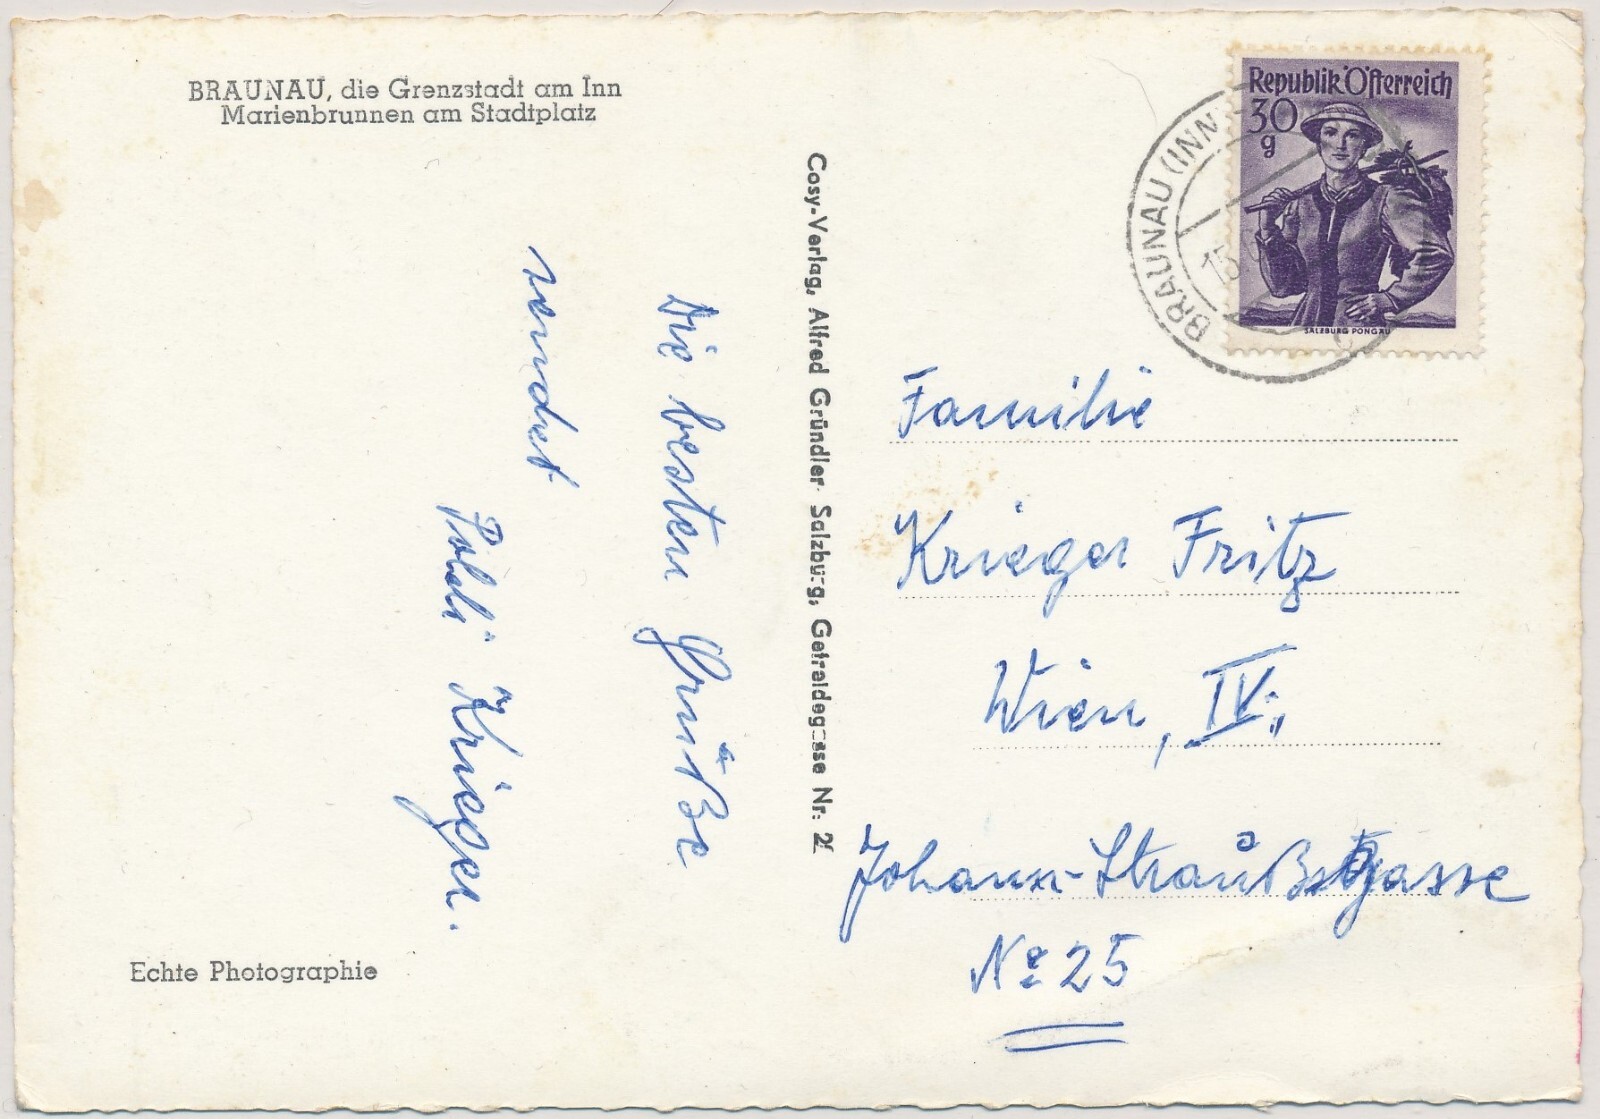 BRAUNAU, die Grenzstadt am Inn
Marienbrunnen am Stadtplatz
Die besten Grüße
sendet
Poldi Krieger.
Echte Photographie
Cosy-Verlag, Alfred Gründler Salzburg, Getreidegasse Nr:
Republik Österreich
30
g
SALZBURG PONGAU
BRAUNAU (INN
15
Familie
Krieger Fritz
Wien, IV.,
Johann-Straußgasse
No 25